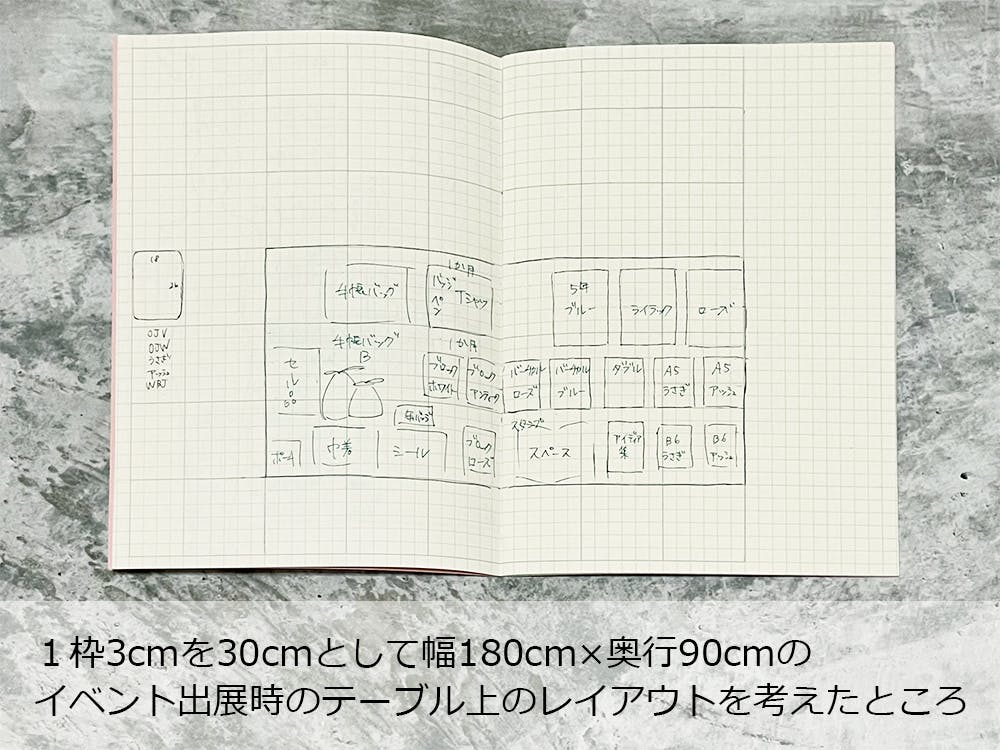 18
26
OJV
OJW
うさぎ
アッシュ
WRJ
手帳バッグ
1か月
バッジ
ペン
Tシャツ
5年
ブルー
ライラック
ローズ
手帳バッグ
B
1か月
セル
ブロック
ホワイト
ブロック
アンティーク
バーチカル
ローズ
バーチカル
ブルー
ダブル
A5
うさぎ
A5
アッシュ
缶バッジ
ポーチ
巾着
シール
ブロック
ローズ
スタンプ
スペース
アイディア
集
B6
うさぎ
B6
アッシュ
1枠3cmを30cmとして幅180cm×奥行90cmの
イベント出展時のテーブル上のレイアウトを考えたところ